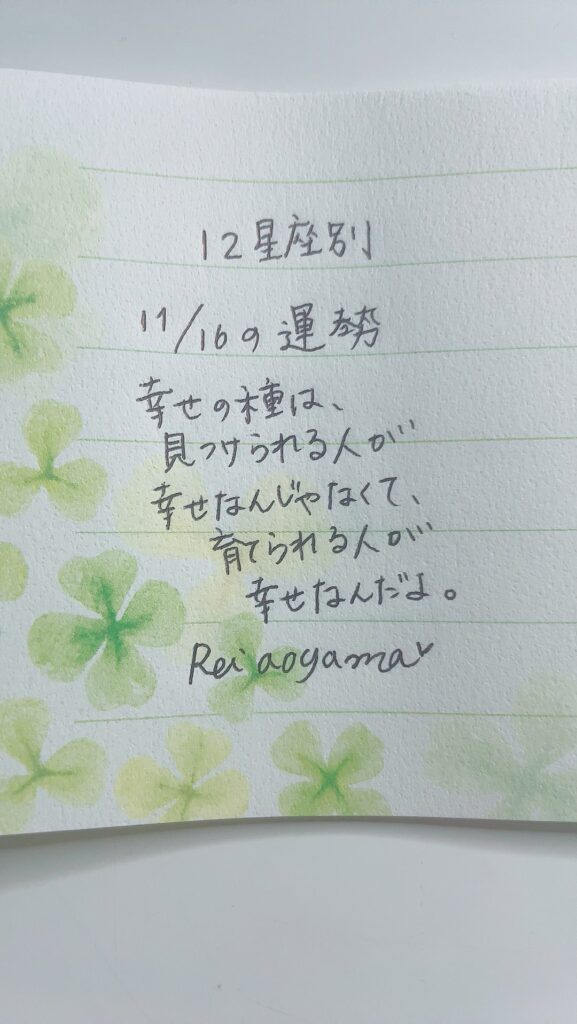 12星座別
11/16の運勢
幸せの種は、
見つけられる人が
幸せなんじゃなくて、
育てられる人が
幸せなんだよ。
Rei aoyama♥